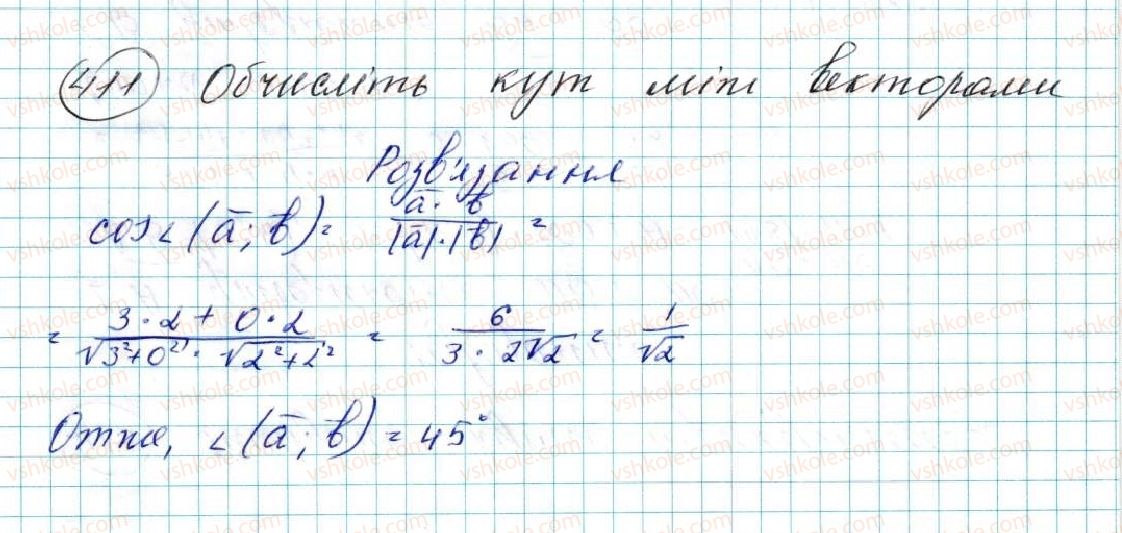 411 Обчисліть кут між векторами
Розв'язання
cos∠(a̅; b̅) = (a̅·b̅)/(|a̅|·|b̅|) =
= (3·2 + 0·2)/(√(3²+0²)·√(2²+2²)) = 6/(3·2√2) = 1/√2
Отже, ∠(a̅; b̅) = 45°
vshkole.com